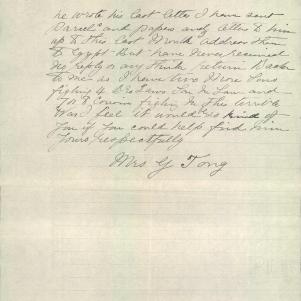 he wrote his last letter I have sent
Parcels and papers and letters to him
up to this last Month address them
to Egypt But have never received
no reply or any think return Back
to me as I have two More Sons
fighting & Son In Law and
Cousins fighting In this terrible
War I feel it would be kind of
you if you could help find him
Yours respectfully
Mrs G Tong